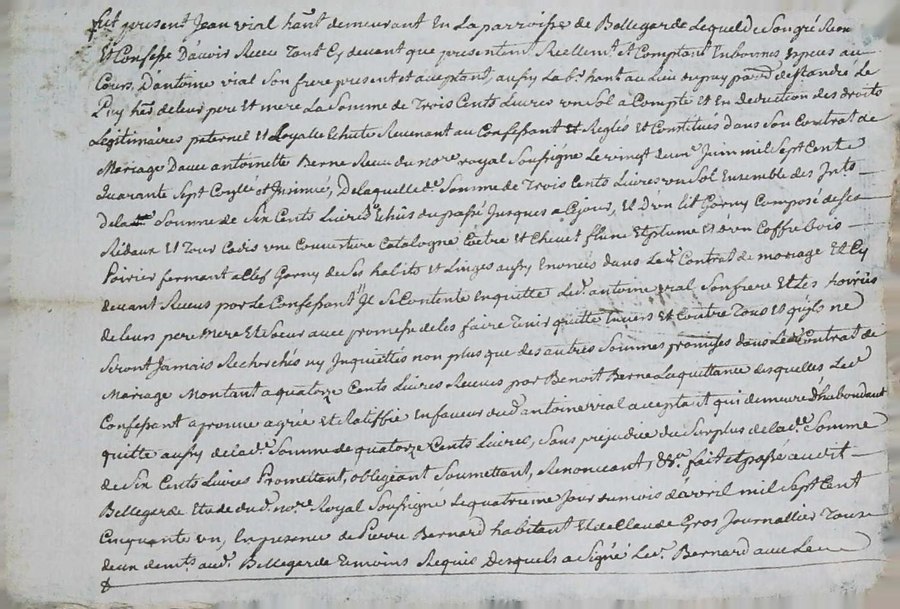 fut présent Jean vial hant demeurant En La parroisse de Bellegarde Lequel de Son gré Recon
Et Confesse D'avoir Receu Tant Cy devant que presentemt Reellemt et Comptant En bonnes Especes au
Cours, D'antoine vial Son frere present et acceptant, aussy La bt hant au Lieu du puy parsse de st andré Le
Puy hers de leur pere Et mere La Somme de Trois Cents Livres un Sol a Compte et En deduction des droits
Legitimaires paternel Et Loyalle Echute Revenant au Confessant Et Reglés et Constitués dans Son Contrat de
Mariage D'avec antoinette Berne Receu du nore royal Soussigné Le vingt deux Juin mil Sept Cent
Quarante Sept Conllé et Insinué, De laquelle de Somme de Trois Cents Livres un Sol Ensemble des Jnts
de la Somme de Six Cents Livres Echûs du passé Jusques a Cejour, Et d'un Lit Garny Composé de ses
Rideaux Et Tour Cadis une Couverture Catalogne Coëtre Et Chevet plume Et d'un Coffre bois
Poirier fermant a Clef Garny de Ses habits et Linges aussy Enoncés dans Led Contrat de mariage Et Cy
devant Receus par Le Confessant Jl Se Contente En quitte Led antoine vial Son frere Et Les hoiries
de leurs pere Mere Et Soeur avec promesse de les faire Tenir quitte Envers et Contre Tous Et quils ne
Seront Jamais Recherchés ny Jnquietés non plus que des autres Sommes promises dans Led Contrat de
Mariage Montant a quatorze Cents Livres Receues par Benoit Berne La quittance desquelles Led
Confessant aprouve agrée Et Ratiffie En faveur dud antoine vial acceptant qui demeure d'habondant
quitte aussy de lade Somme de quatorze Cents Livres, Sans prejudice du Surplus de lade Somme
de Six Cents Livres Promettant, obligeant Soumettant, Renonceant, &a. fait et passé aud
Bellegarde Etude dud nore Royal Soussigné Le quatrieme Jour du mois d'avril mil Sept Cent
Cinquante un, En presence de Pierre Bernard habitant Et de Claude Gros Journallier Tous
deux demts aud Bellegarde Temoins Requis Desquels a Signé Led Bernard avec Led